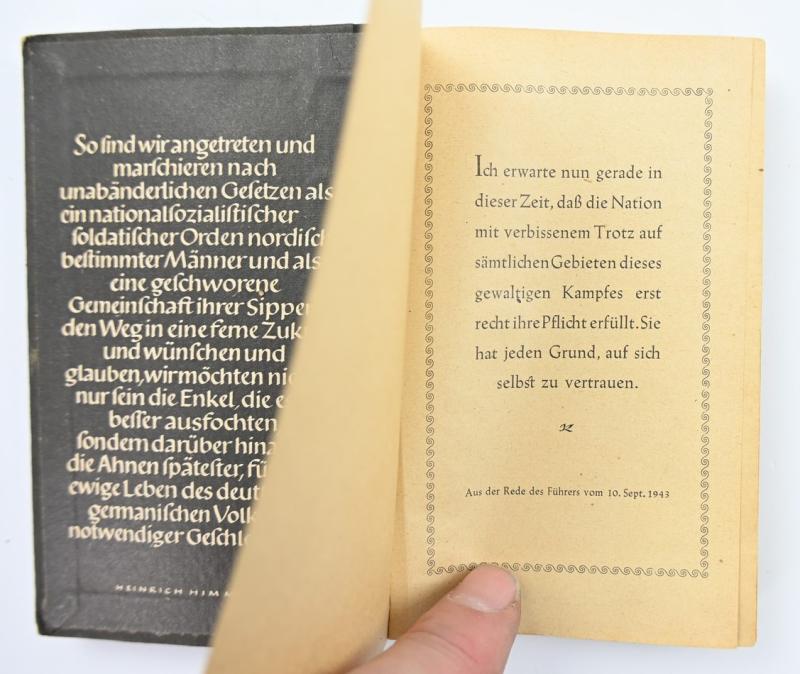 So sind wir angetreten und
marschieren nach
unabänderlichen Gesetzen als
ein nationalsozialistischer
soldatischer Orden nordisch
bestimmter Männer und als
eine geschworene
Gemeinschaft ihrer Sippen
den Weg in eine ferne
und wünschen und
glauben, wir möchten
nur sein die Enkel, die
besser ausfochten
sondern darüber
die Ahnen spätester,
ewige Leben des
germanischen
notwendiger
HEINRICH
Ich erwarte nun gerade in
dieser Zeit, daß die Nation
mit verbissenem Trotz auf
sämtlichen Gebieten dieses
gewaltigen Kampfes erst
recht ihre Pflicht erfüllt. Sie
hat jeden Grund, auf sich
selbst zu vertrauen.
Aus der Rede des Führers vom 10. Sept. 1943